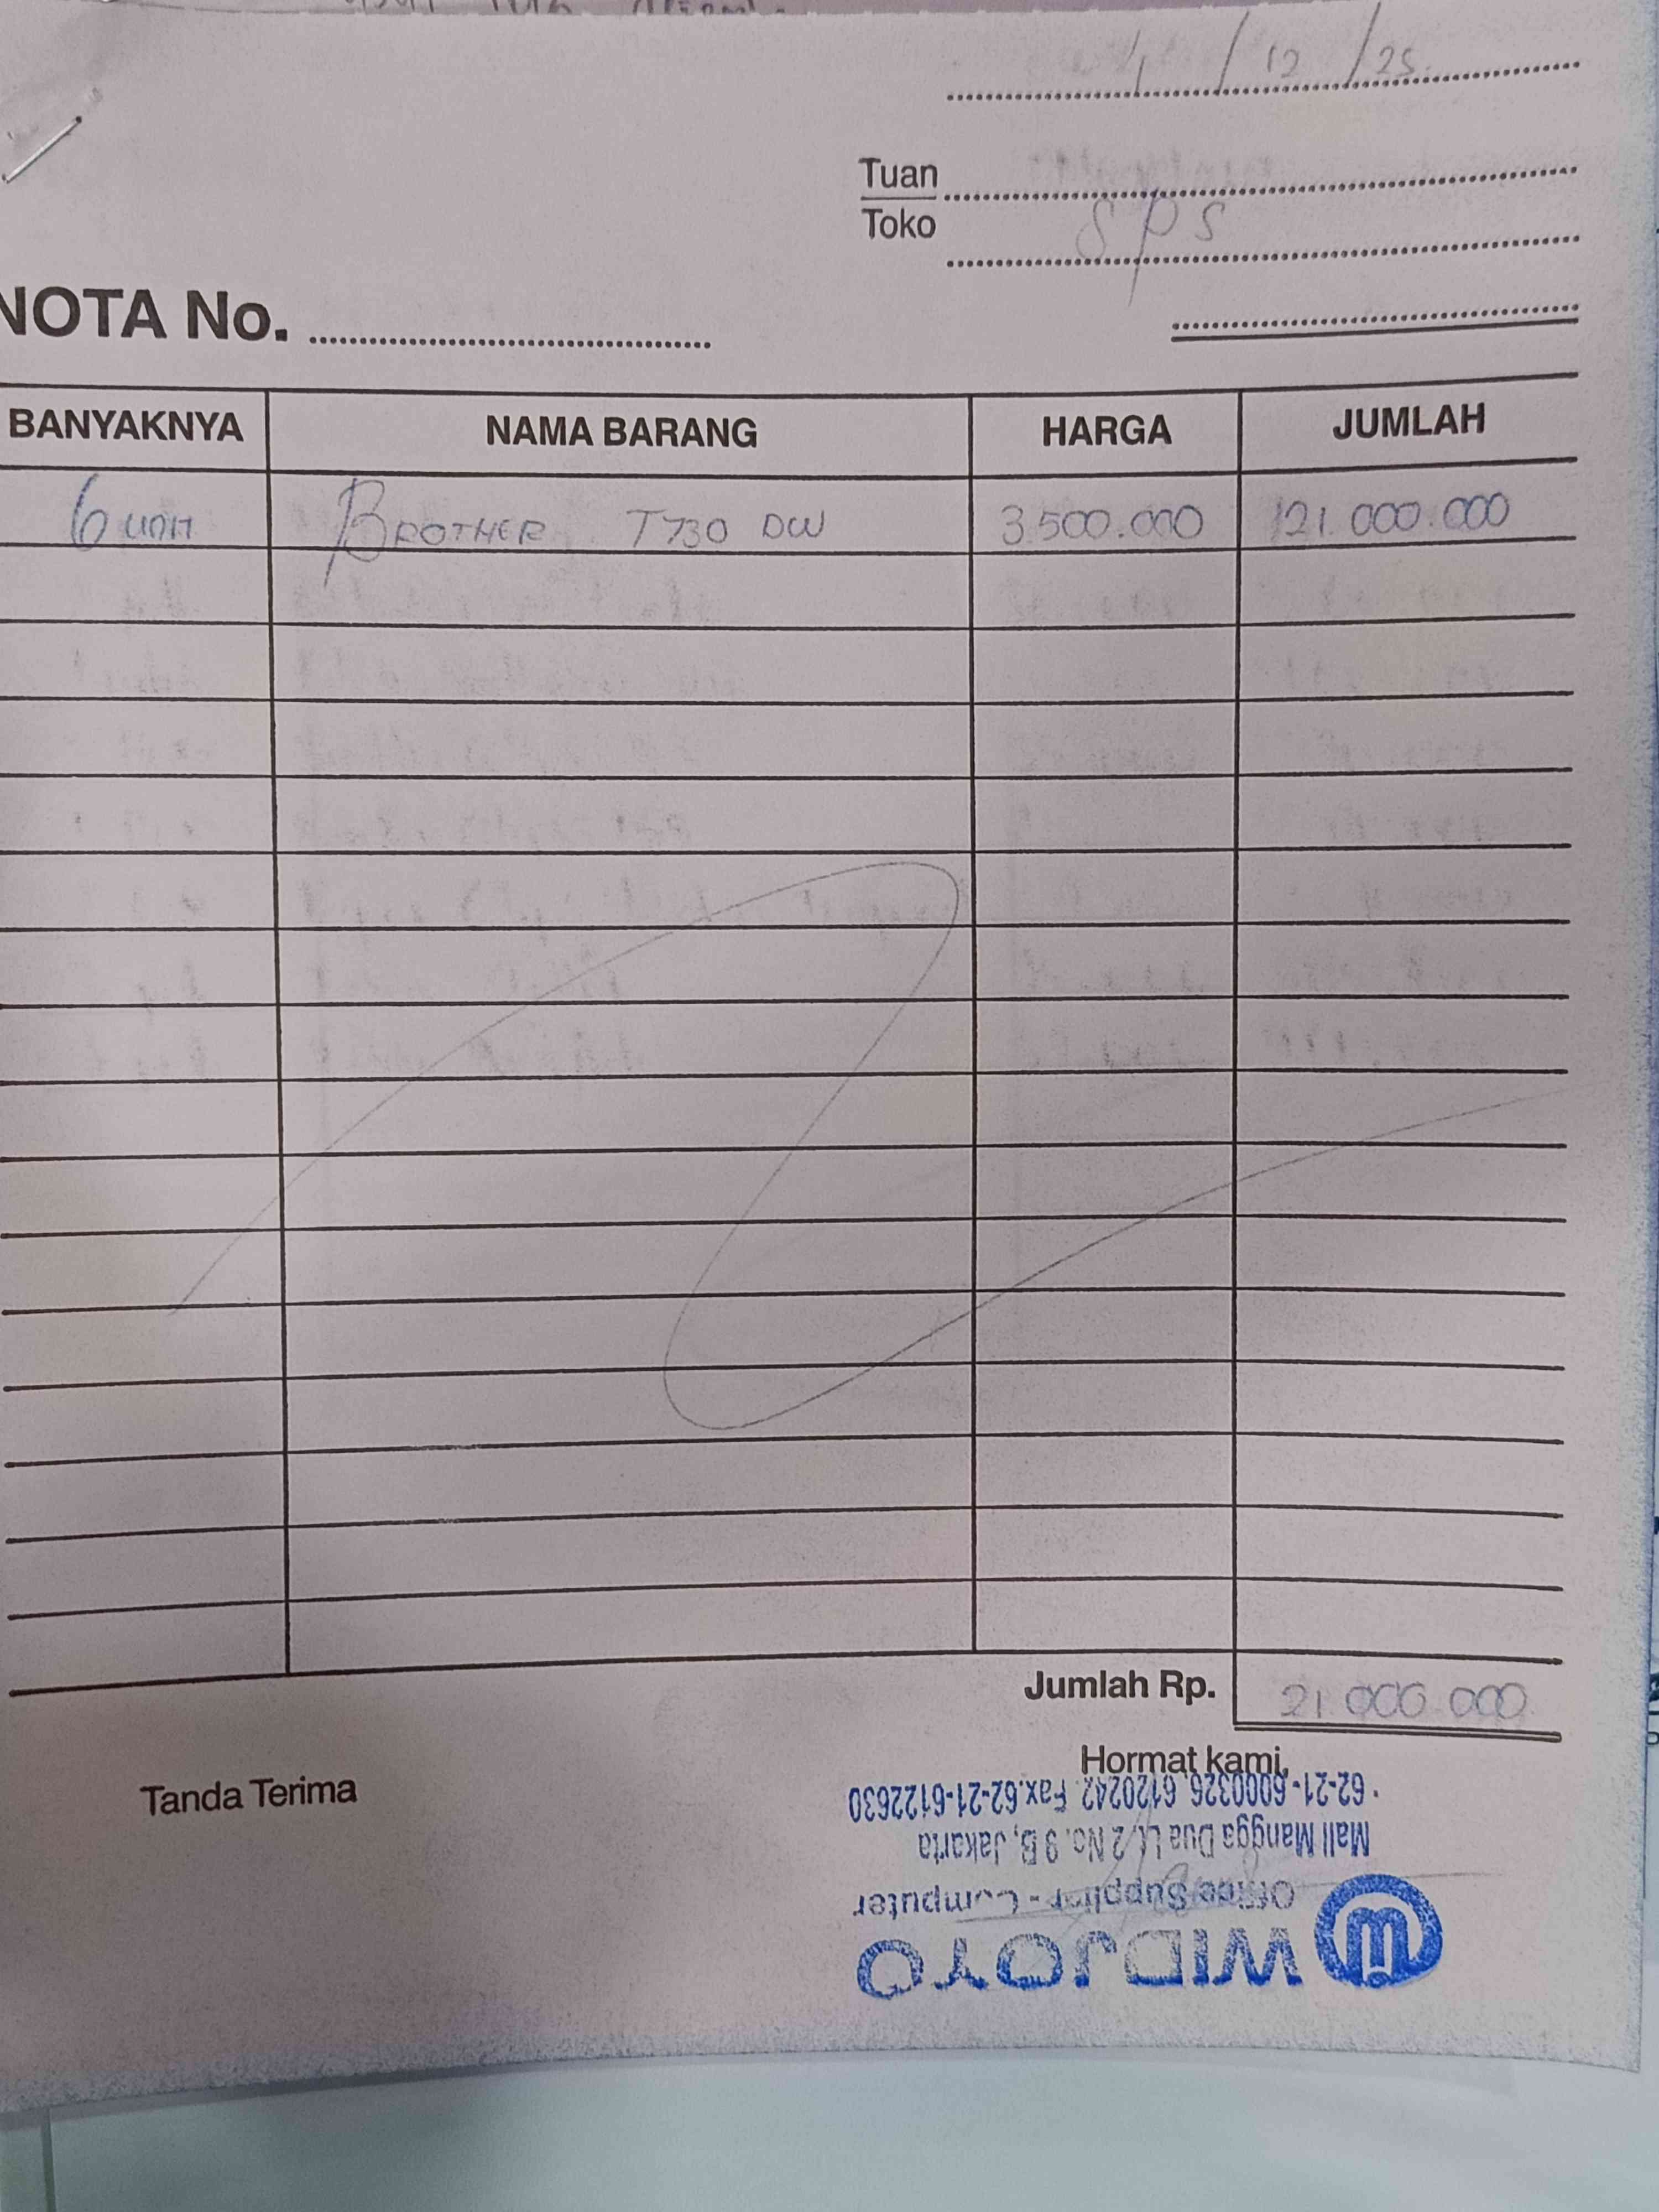 1 / 12 / 25
Tuan
Toko SPS
NOTA No.
BANYAKNYA NAMA BARANG HARGA JUMLAH
6 unit BROTHER T730 DW 3.500.000 21.000.000
Jumlah Rp. 21.000.000
Tanda Terima Hormat kami,
WIDJOYO
Office Supplier - Computer
Mall Mangga Dua Lt. 2 No. 9 B, Jakarta
62-21-6000326, 6120242 Fax.62-21-6122630